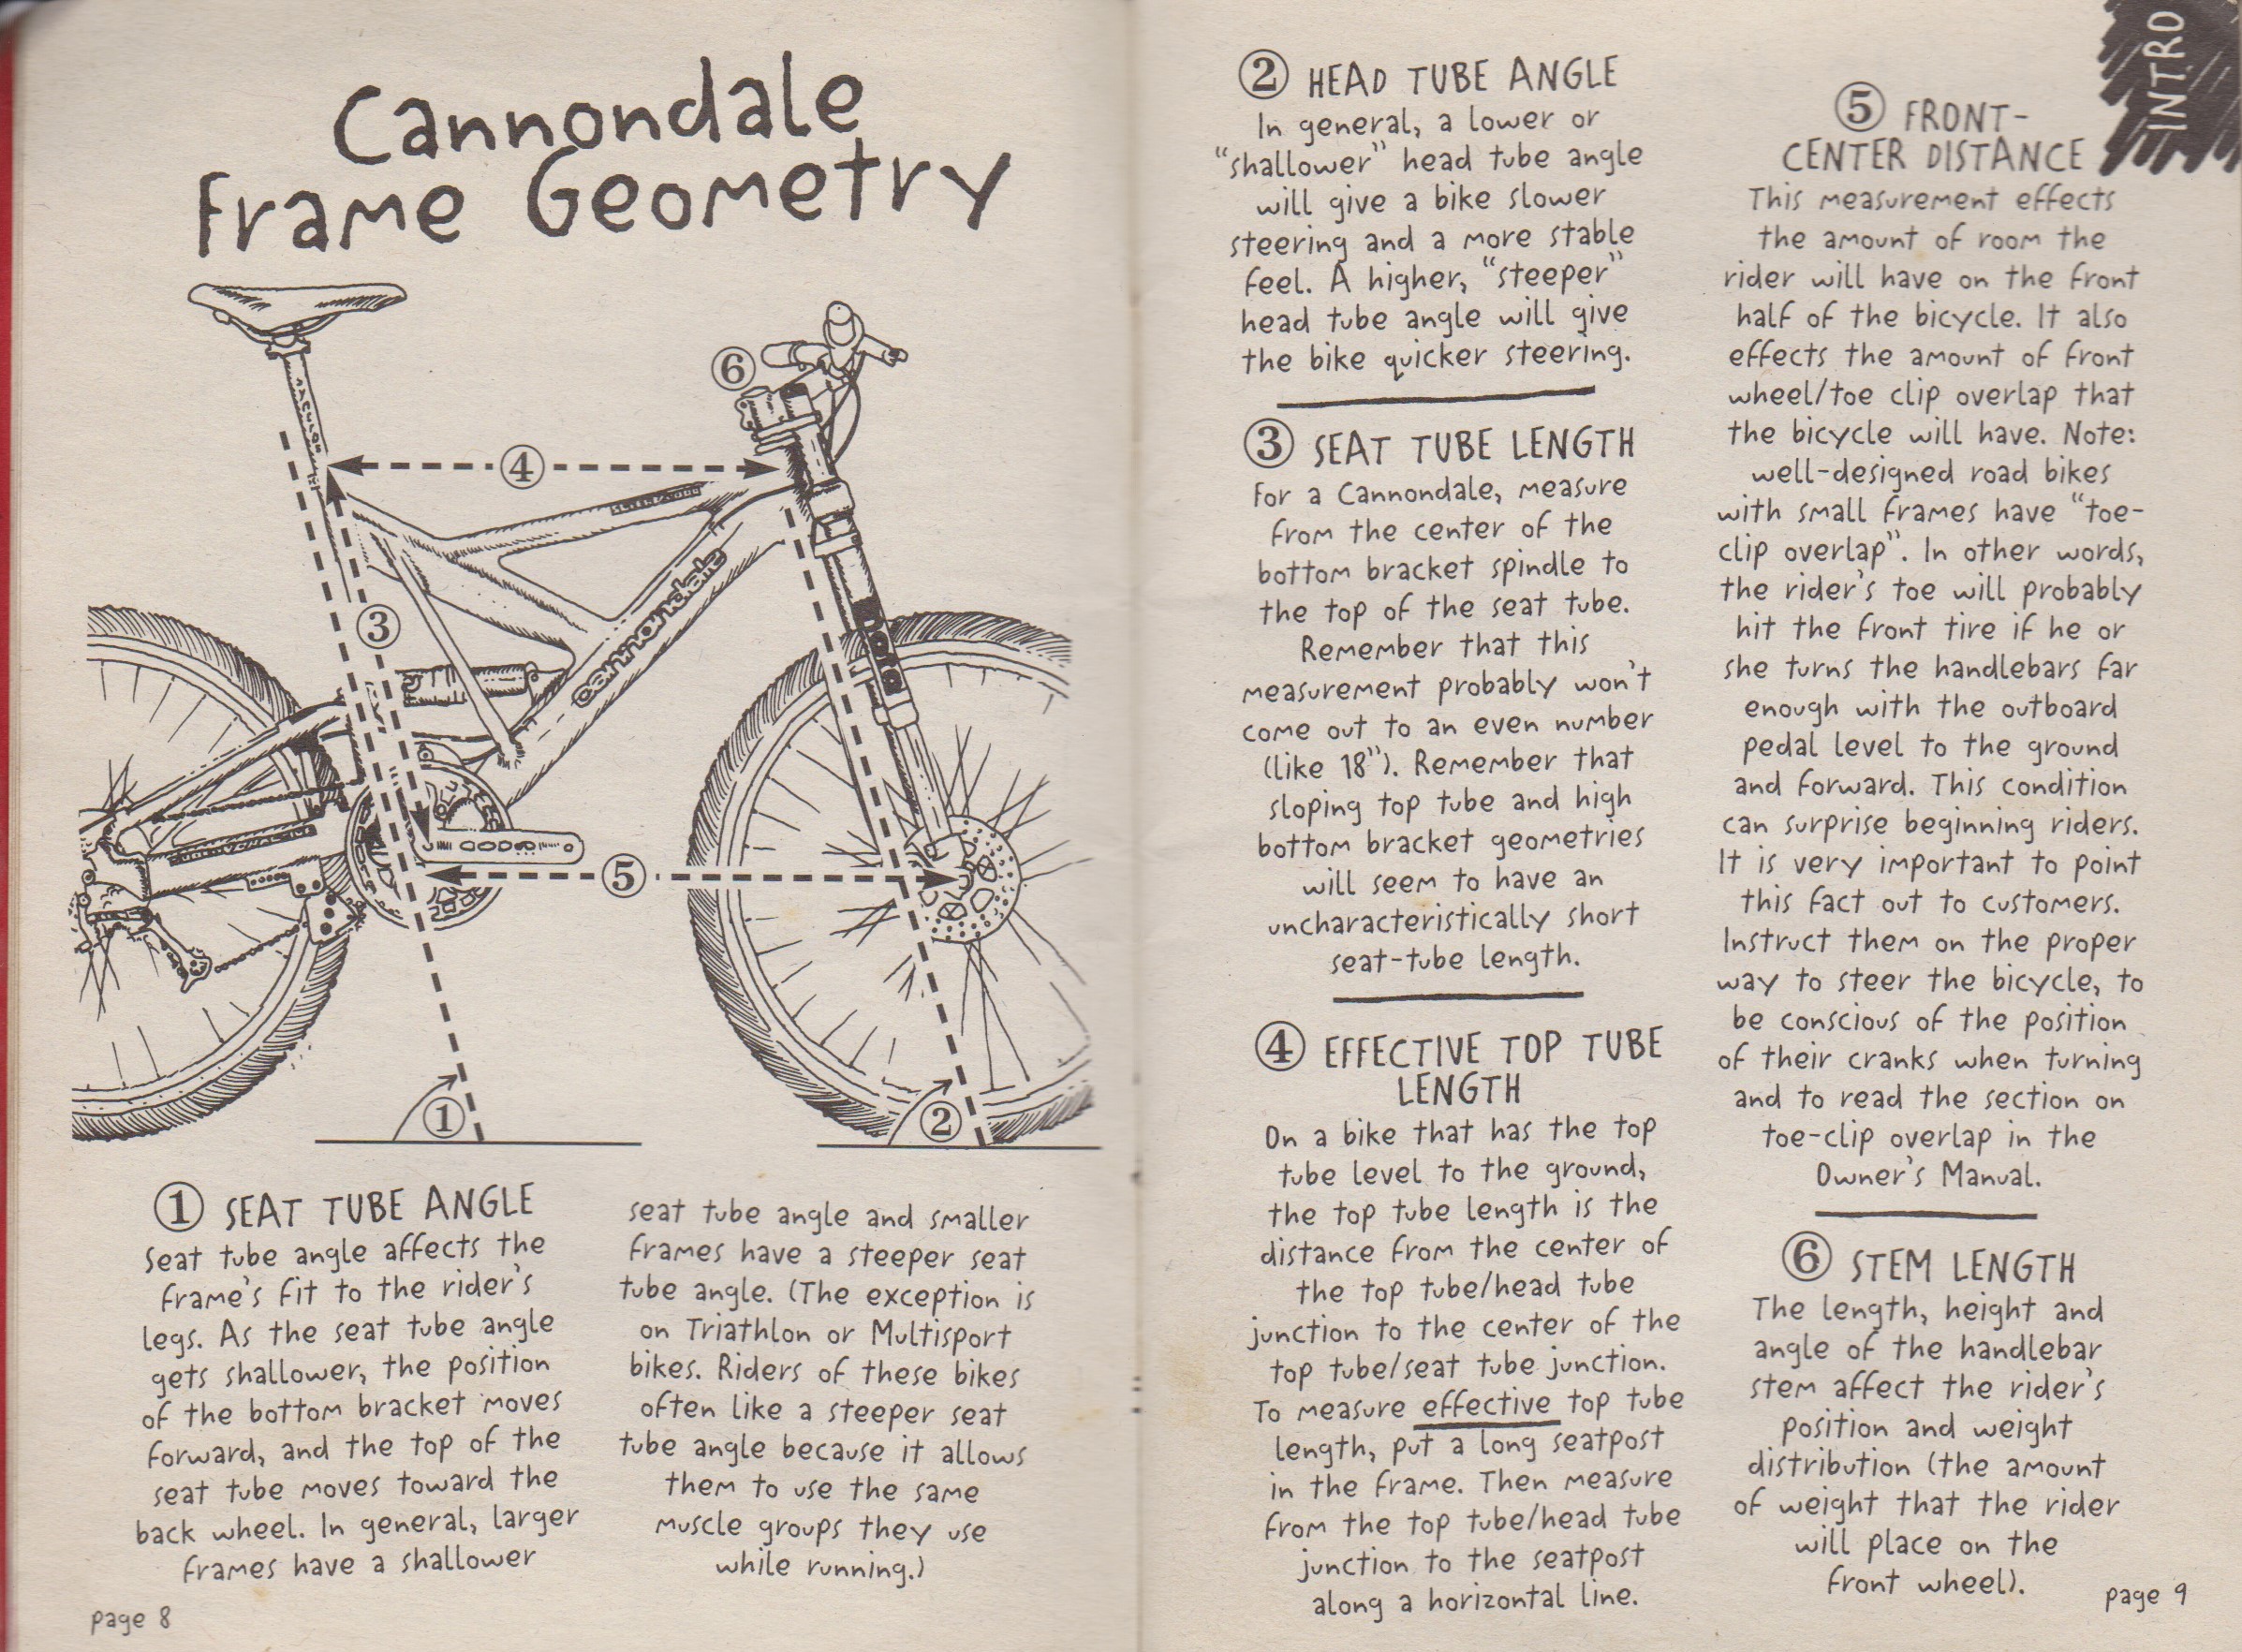 Cannondale
Frame Geometry
6
4
cannondale
3
5
1
2
1 SEAT TUBE ANGLE
Seat tube angle affects the
frame's fit to the rider's
legs. As the seat tube angle
gets shallower, the position
of the bottom bracket moves
forward, and the top of the
seat tube moves toward the
back wheel. In general, larger
frames have a shallower
seat tube angle and smaller
frames have a steeper seat
tube angle. (The exception is
on Triathlon or Multisport
bikes. Riders of these bikes
often like a steeper seat
tube angle because it allows
them to use the same
muscle groups they use
while running.)
page 8
2 HEAD TUBE ANGLE
In general, a lower or
“shallower” head tube angle
will give a bike slower
steering and a more stable
feel. A higher, “steeper”
head tube angle will give
the bike quicker steering.
3 SEAT TUBE LENGTH
For a Cannondale, measure
from the center of the
bottom bracket spindle to
the top of the seat tube.
Remember that this
measurement probably won't
come out to an even number
(like 18”). Remember that
sloping top tube and high
bottom bracket geometries
will seem to have an
uncharacteristically short
seat-tube length.
4 EFFECTIVE TOP TUBE
LENGTH
On a bike that has the top
tube level to the ground,
the top tube length is the
distance from the center of
the top tube/head tube
junction to the center of the
top tube/seat tube junction.
To measure effective top tube
length, put a long seatpost
in the frame. Then measure
from the top tube/head tube
junction to the seatpost
along a horizontal line.
INTRO
5 FRONT-
CENTER DISTANCE
This measurement effects
the amount of room the
rider will have on the front
half of the bicycle. It also
effects the amount of front
wheel/toe clip overlap that
the bicycle will have. Note:
well-designed road bikes
with small frames have “toe-
clip overlap”. In other words,
the rider's toe will probably
hit the front tire if he or
she turns the handlebars far
enough with the outboard
pedal level to the ground
and forward. This condition
can surprise beginning riders.
It is very important to point
this fact out to customers.
Instruct them on the proper
way to steer the bicycle, to
be conscious of the position
of their cranks when turning
and to read the section on
toe-clip overlap in the
Owner's Manual.
6 STEM LENGTH
The length, height and
angle of the handlebar
stem affect the rider's
position and weight
distribution (the amount
of weight that the rider
will place on the
front wheel).
page 9